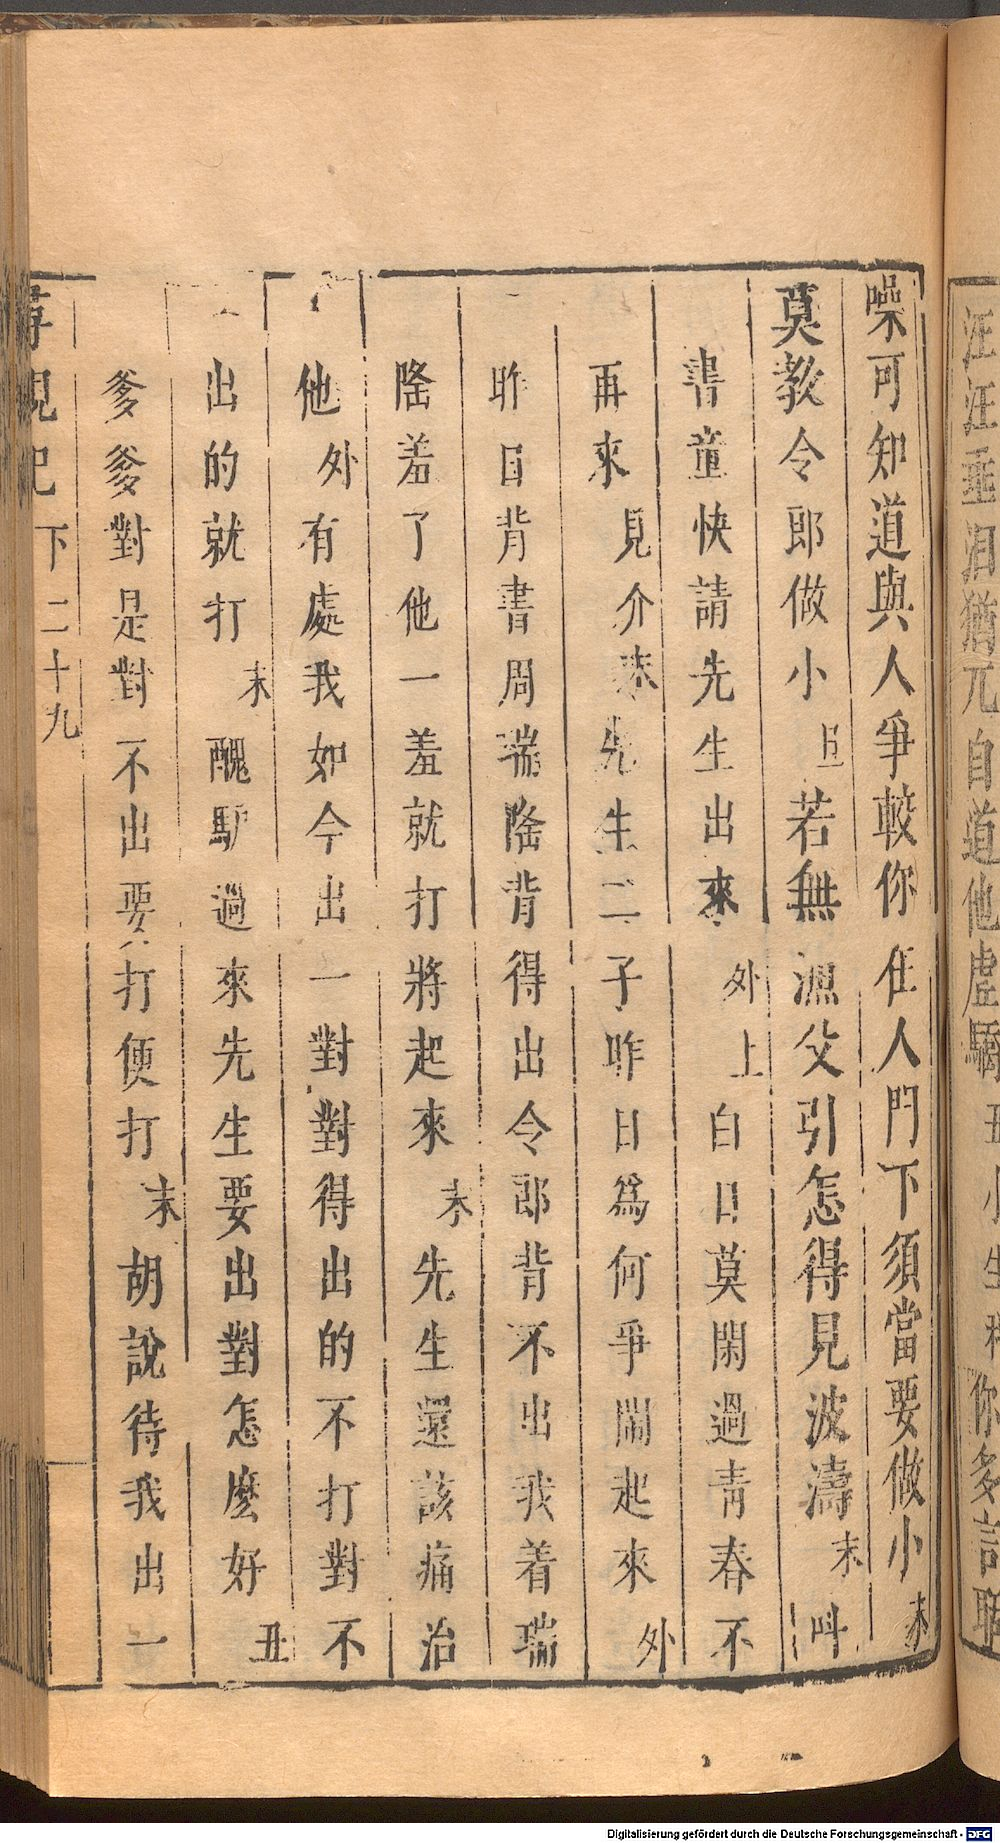 汪汪垂淚猶兀自道他虛驕丑小生
你多言
噪可知道與人爭較你在人門下須當要做小末
莫教令郎做小丑若無漁父引怎得見波濤末叫
書童快請先生出來外上白日莫閑過青春不
再來見介末先生二子昨日爲何爭鬧起來外
昨日背書周瑞隆背得出令郎背不出我着瑞
隆羞了他一羞就打將起來末先生還該痛治
他外有處我如今出一對對得出的不打對不
出的就打末醜馿過來先生要出對怎麼好丑
爹爹對是對不出要打便打末胡說待我出一
尋親記下二十九
Digitalisierung gefördert durch die Deutsche Forschungsgemeinschaft - DFG